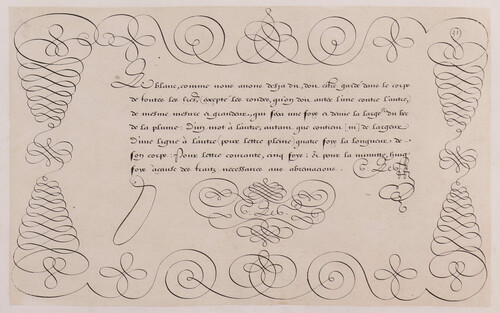 Le blanc, comme nous avons desja dit, doit estre gardé dans le corps
de toutes les lres, excepté les rondes, qu'on doit antes l'une contre l'autre,
de mesme mesure et grandeur, qui sera une foys et demie la large du bec
de la plume: D'un mot à l'autre, autant que contient [m] de largeur
D'une ligne à l'autre [pour lettre pleine] quatre foys la longueur de
son corps: Pour lettre courante, cinq foys: & pour la minutte, huit
foys acause des traitz necessaires aux abreviations.